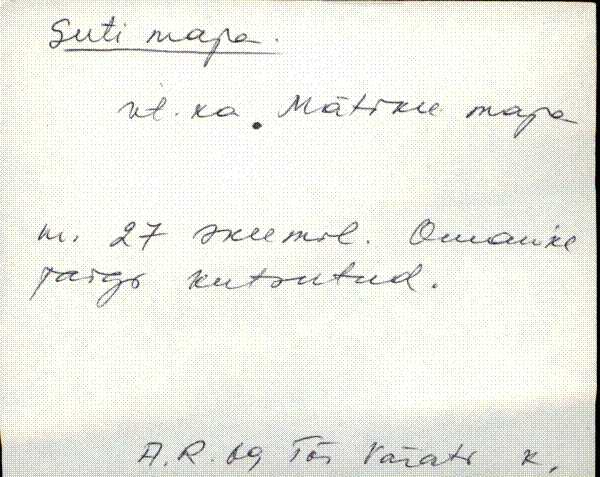 Suti maja.
vt. ka. Mätiku maja
nr. 27 skeemil. Omanike
järgi kutsutud.
A.R. 69 Tõs Varati k.